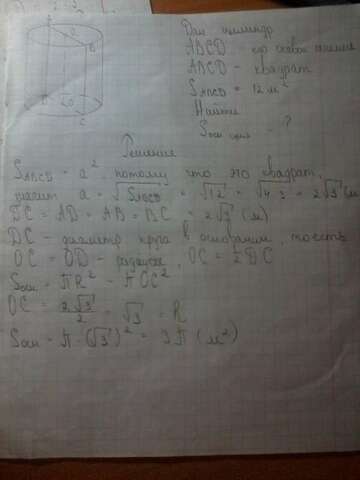 A
O
B
D
C
Дан цилиндр
ABCD осевое сечение
ABCD - квадрат
SABCD = 12 м²
Найти
Sосн - ?
Решение
SABCD = a² потому что это квадрат,
значит a = √SABCD = √12 = √4·3 = 2√3 (м)
DC = AD = AB = BC = 2√3 (м)
DC - диаметр круга в основании, то есть
OC = OD - радиусы, OC = ½DC
Sосн = πR² = πOC²
OC = 2√3/2 = √3 = R
Sосн = π·(√3)² = 3π (м²)